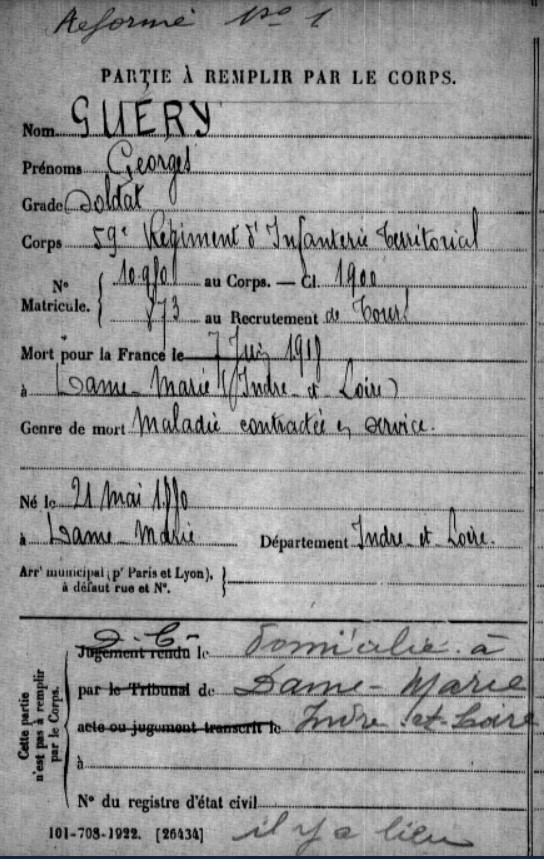 Réformé No 1
PARTIE À REMPLIR PAR LE CORPS.
Nom GUÉRY
Prénoms Georges
Grade Soldat
Corps 59e Régiment d'Infanterie Territorial
No Matricule. { 10980 au Corps. — Cl. 1900
873 au Recrutement de Tours
Mort pour la France le 7 Juin 1918
à Dame-Marie (Indre-et-Loire)
Genre de mort Maladie contractée en service.
Né le 21 mai 1880
à Dame-Marie Département Indre-et-Loire.
Arrt municipal (pr Paris et Lyon),
à défaut rue et No.
Cette partie
n'est pas à remplir
par le Corps.
D.C.
Jugement rendu le domicilié à
par le Tribunal de Dame-Marie
acte ou jugement transcrit le Indre-et-Loire
à
No du registre d'état civil
101-708-1922. [26434] il y a lieu